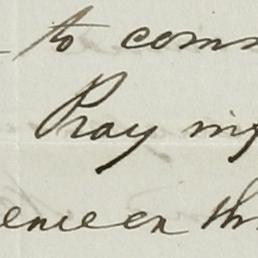 to com
Pray my
ence on th